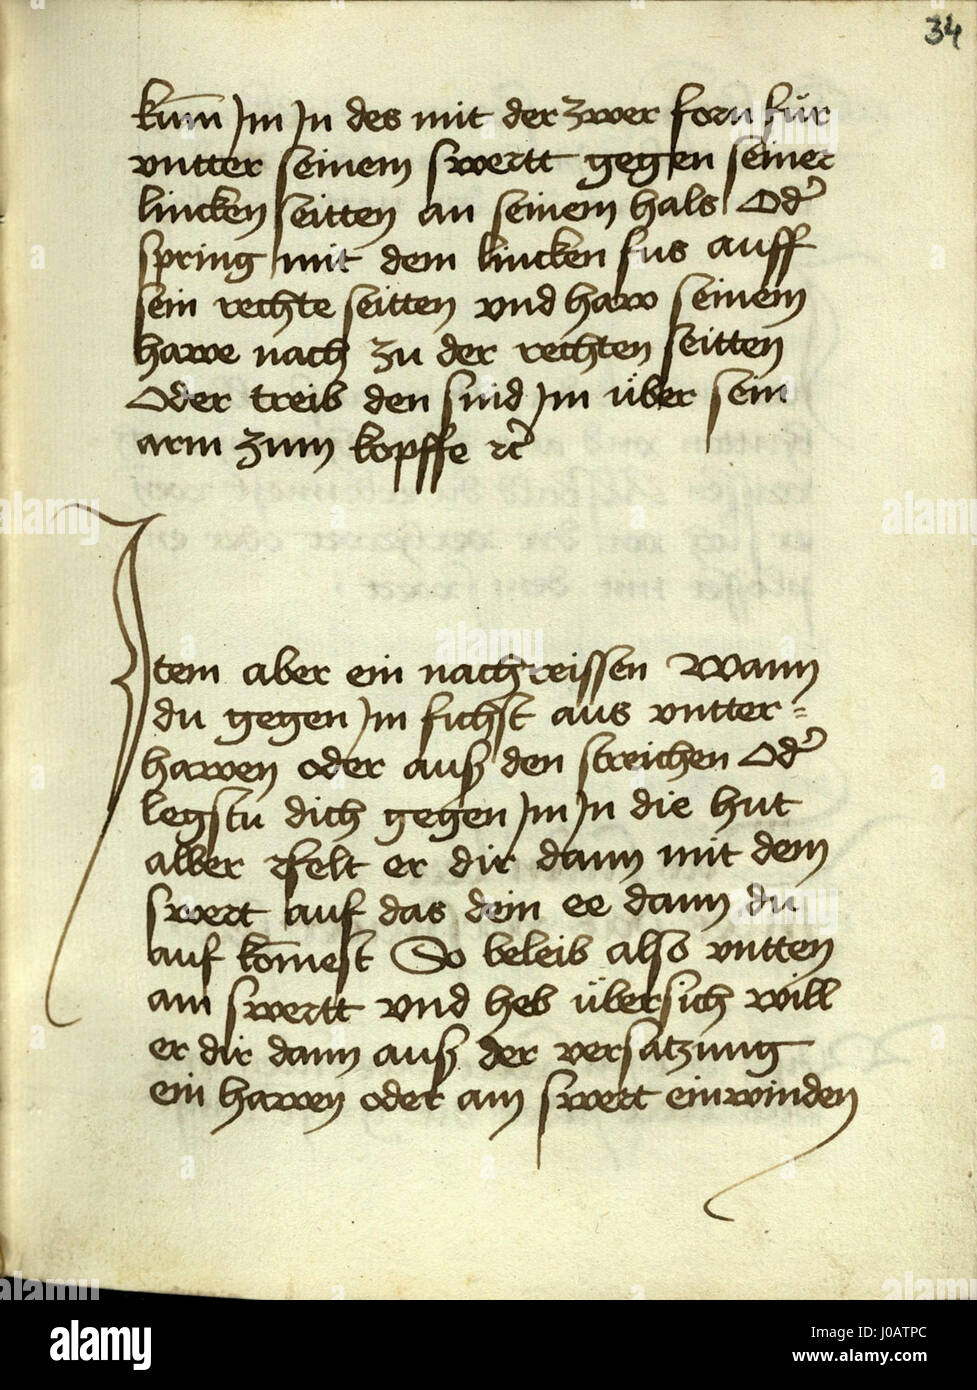 34
kum̄ Jm Jn des mit der zwer forn für
vntter seinem swertt gegen seiner
lincken seitten an seinem hals Od᷑
spring mit dem lincken fus auff
sein rechte seitten vnd haw seinem
hawe nach zu der rechten seitten
Oder treib den snid Jm über sein
arm zum kopffe ⁊c̄
Jtem aber ein nachreissen Wann
du gegen Jm fichst aus vntter=
hawen oder auß den streichen Od᷑
legstu dich gegen Jm Jn die hut
alber felt er dir dann mit dem
swert auf das dein ee dann du
auf kom̄est So beleib also vntten
am swertt vnd heb übersich will
er dir dann auß der versatzung
ein hawen oder am swert einwinden
alamy
Image ID: J0ATPC
www.alamy.com